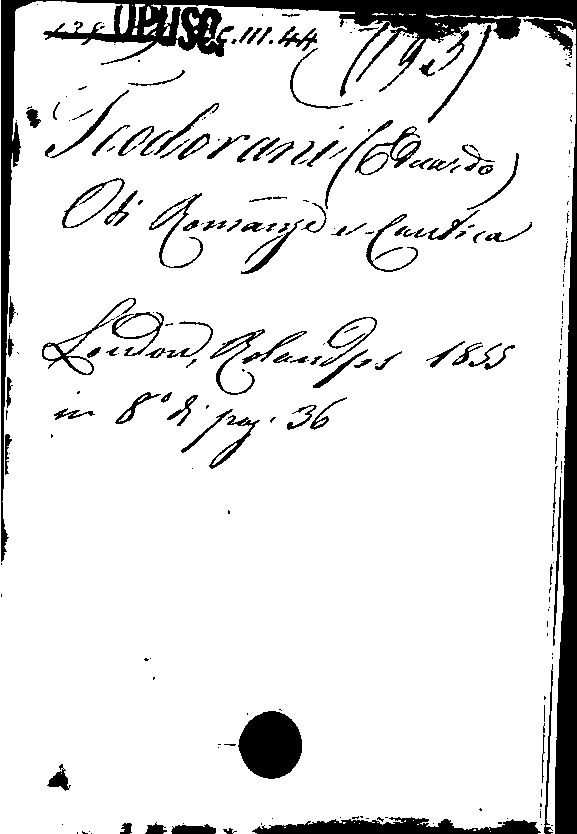 OPUSC. C.III.44 (193)
Teodorani (Eduardo)
Odi Romanze e Cantica
London, Rolandi 1855
in 8° di pag. 36